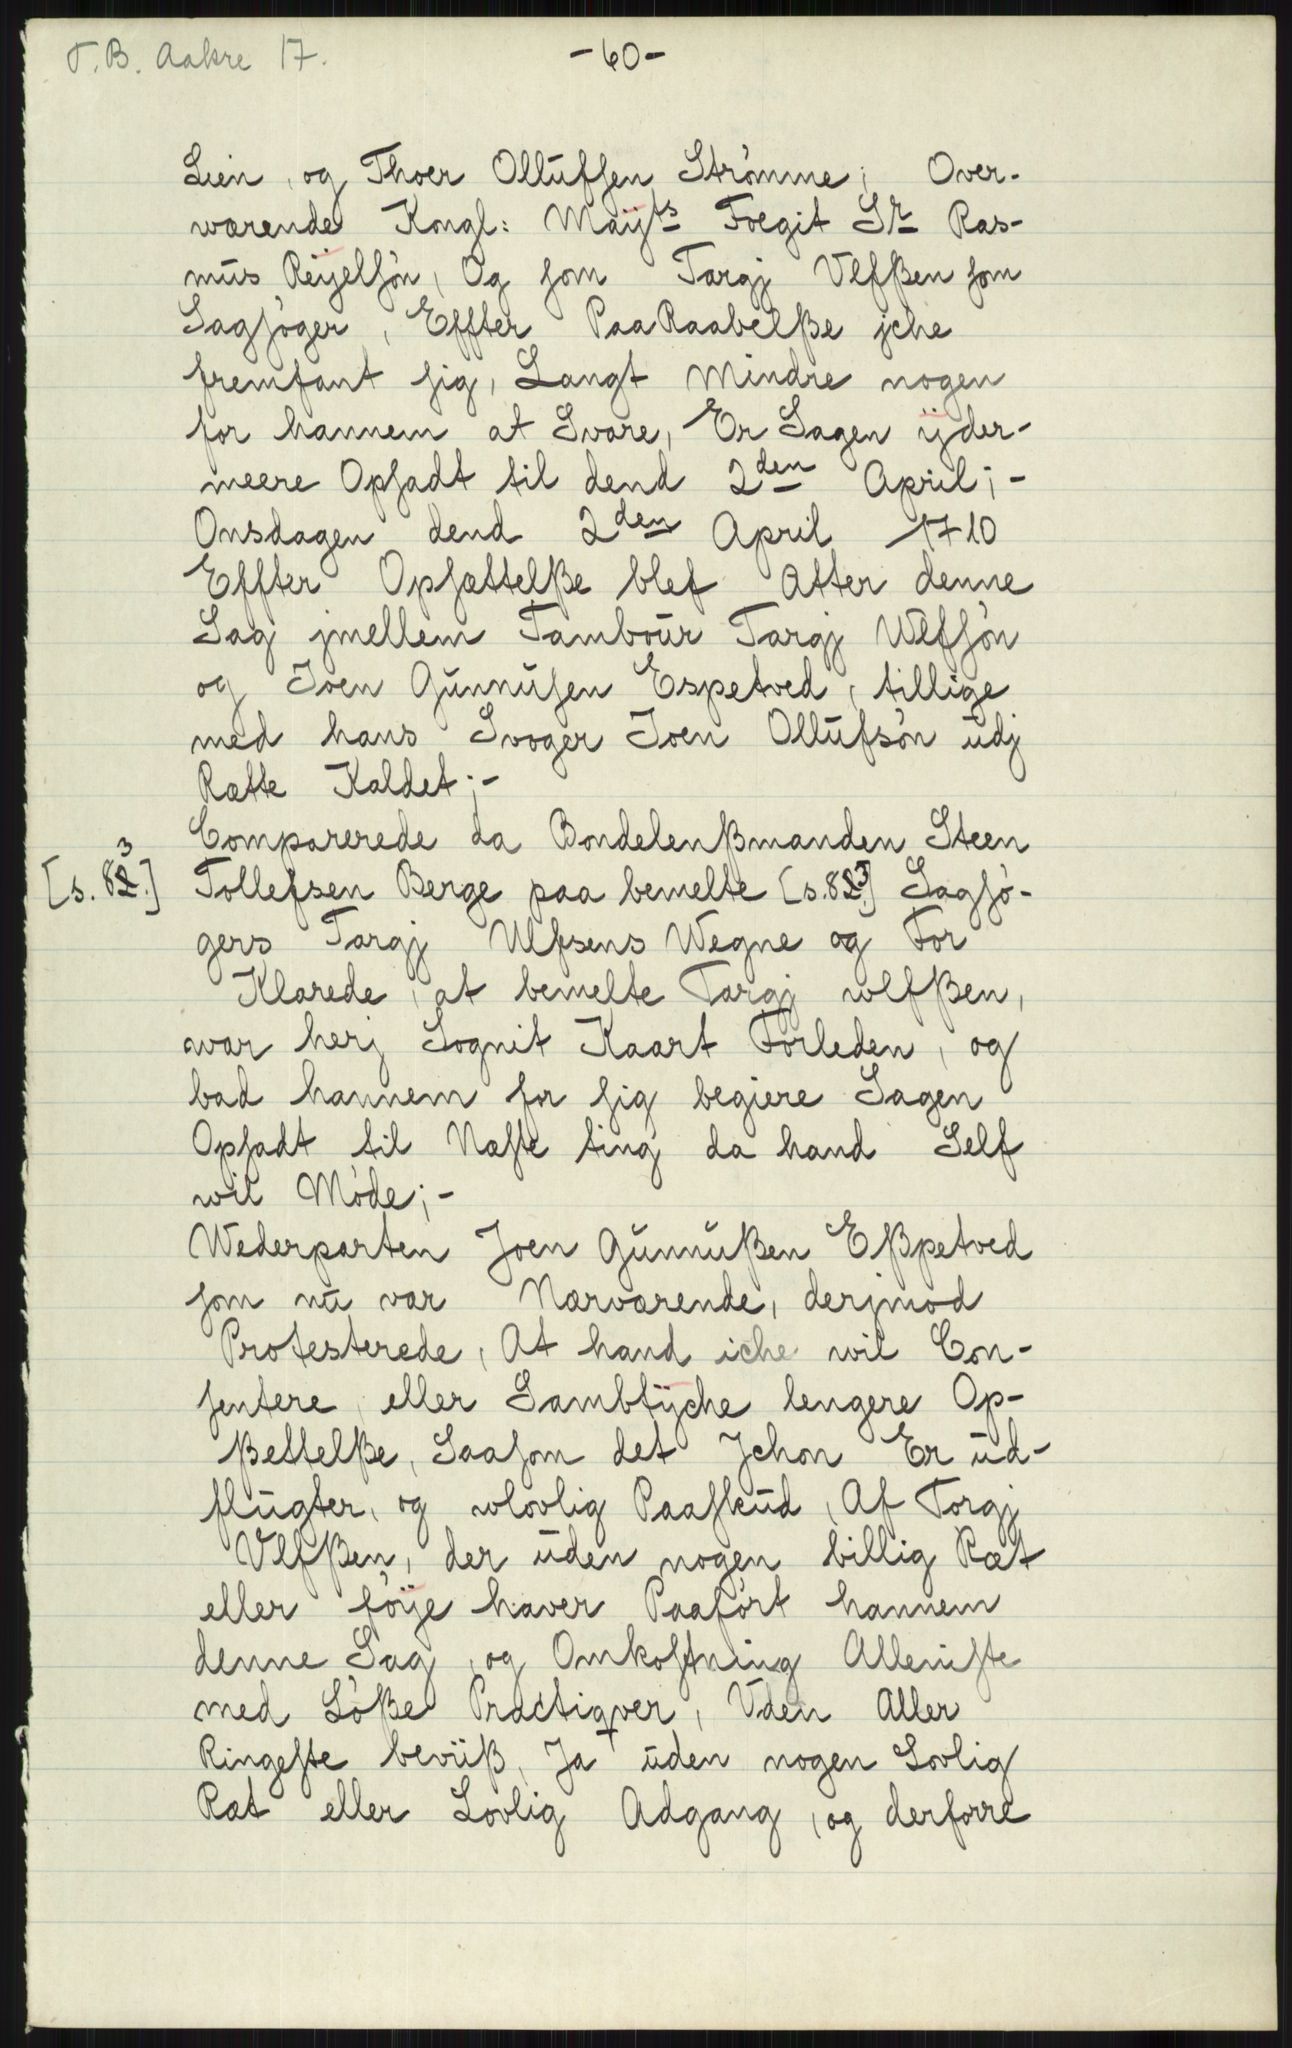 T.B. Aakre 17.
-60-
Lien, og Thoer Olluffsen Strømme; Over-
wærende Kongl: Maÿts Foegit Sr Ras-
mus Reÿelsøn, Og som Targj Ulfßen som
Sagsøger, Effter PaaRaabelße jche
fremfant sig, Langt Mindre nogen
for hannem at Svare, Er Sagen ÿder-
meere Opsadt til dend 2den April;-
Onsdagen dend 2den April 1710
Effter Opsættelße blef Atter denne
Sag jmellem Tambour Targj Ulfsøn
og Joen Gunnufsen Espetved, tillige
med hans Svoger Joen Ollufsøn udj
Rætte Kaldet;-
Comparerede da Bondelenßmanden Steen
[s. 83.] Tollefsen Berge paa bemelte [s.83.] Sagsø-
gers Targj Ulfsens Wegne og For
Klarede, at bemelte Targj wlfßen,
war herj Sognit Kaart Forleden, og
bad hannem for sig begiere Sagen
Opsadt til Næste ting da hand Self
wil Møde;-
Wederparten Joen Gunnußen Eßpetved
som nu var Nærværende, derjmod
Protesterede, At hand iche wil Con-
sentere eller Sambtÿche lengere Op-
ßettelße, Saasom det Jchon Er ud-
flugter, og wlovlig Paaskud, Af Torgj
Ulfßen, der uden nogen billig Ræt
eller føÿe haver Paaført hannem
denne Sag, og Omkostning Alleniste
med Løße Practiqver, Uden Aller
Ringeste beviiß, Ja uden nogen Lovlig
Ræt eller Lovlig Adgang, og derforre